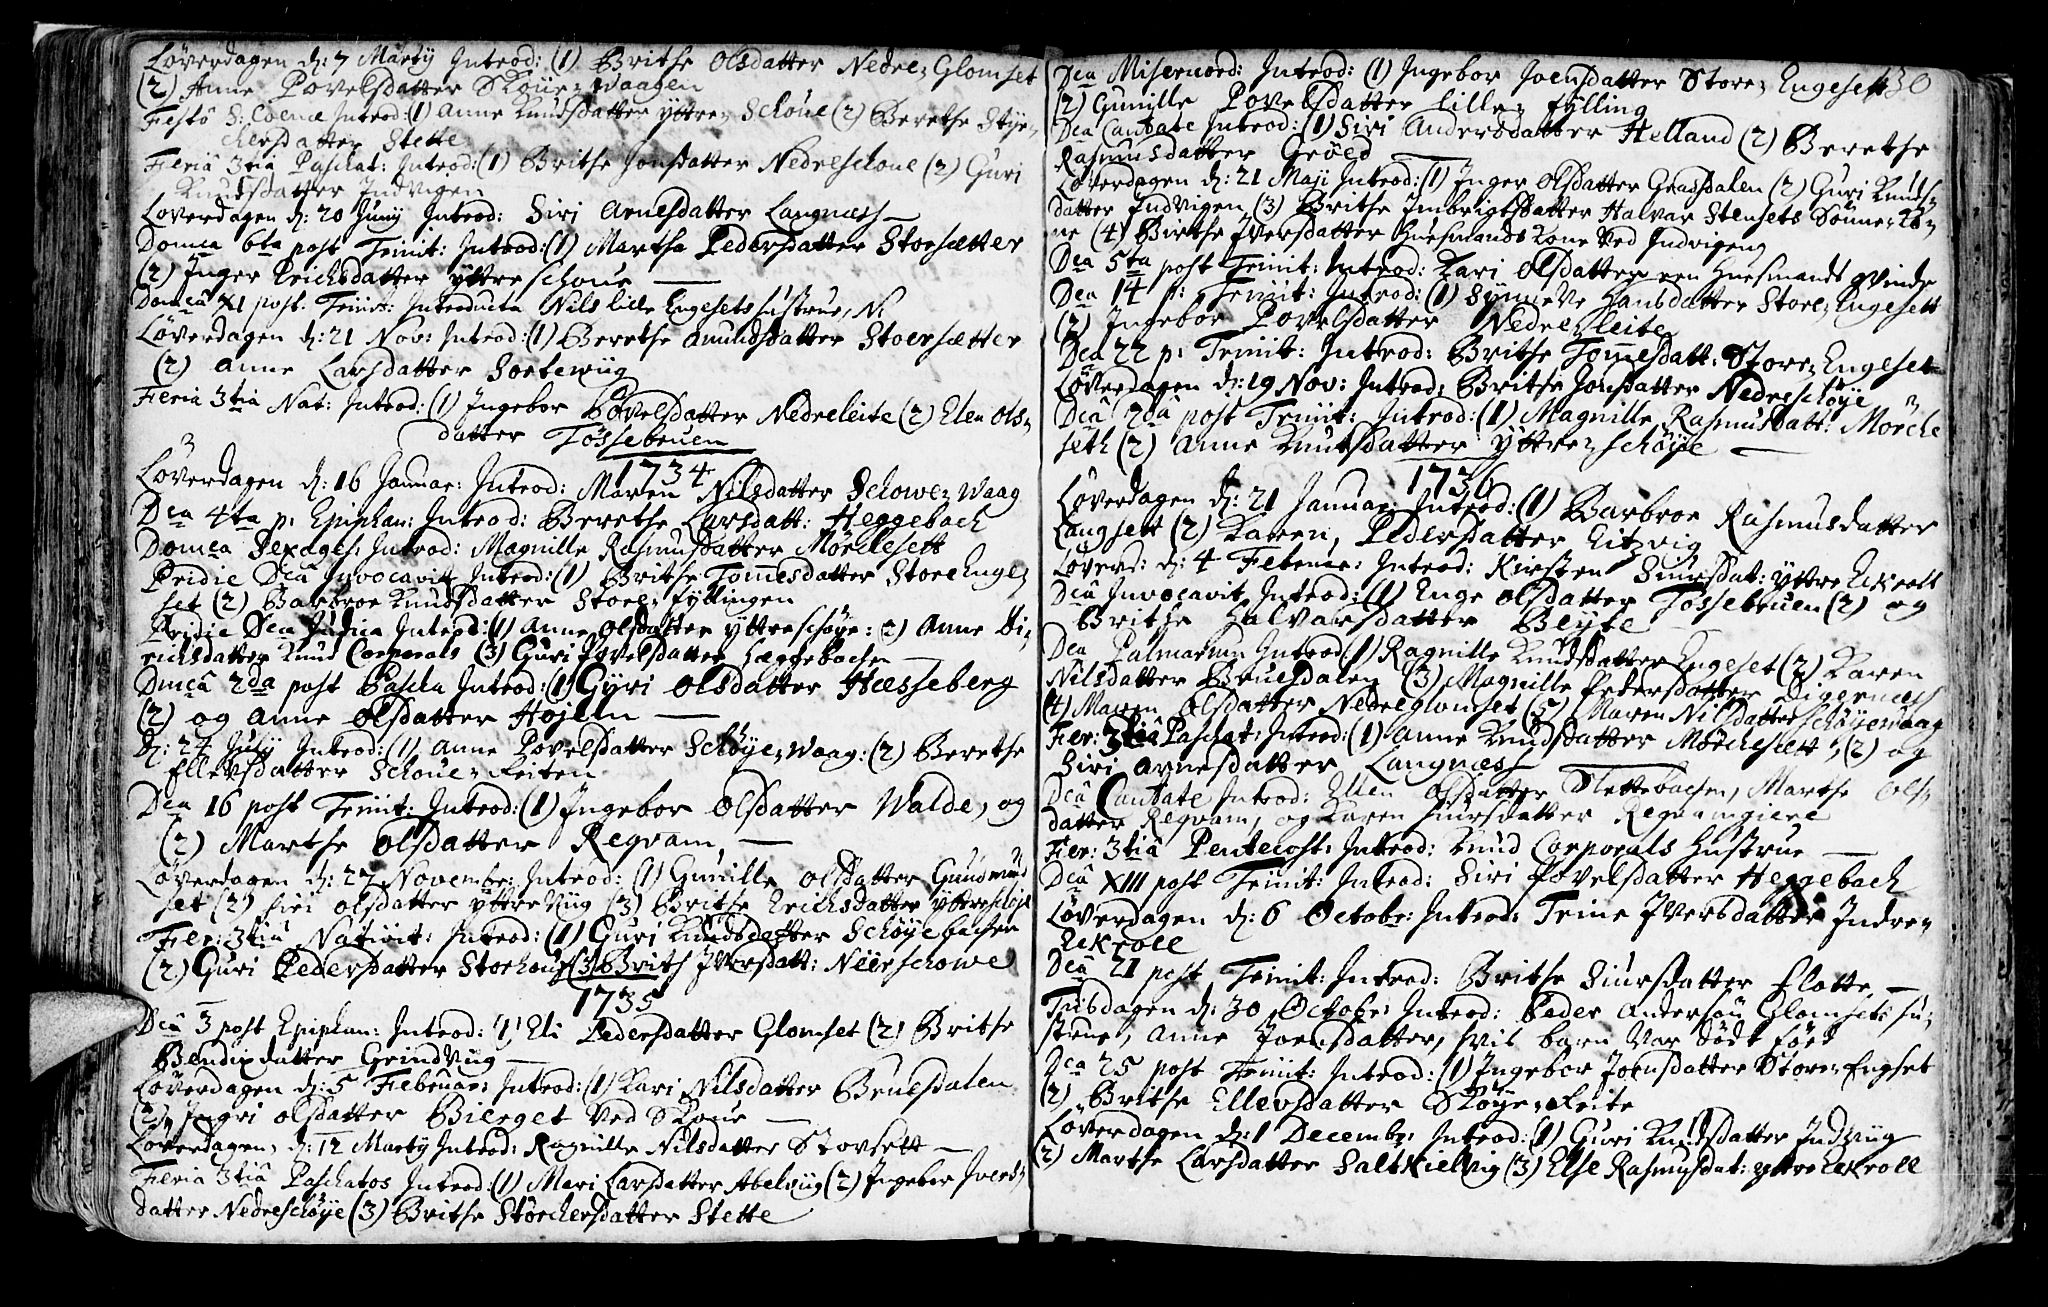 Löverdagen d: 7 Martÿ Introd: (1) Brithe Olsdatter Nedre Glomset
(2) Anne Povelsdatter Skoue Waagen
Festo S: Coenæ Introd: (1) Anne Knudsdatter yttre Schoue (2) Berethe Styr-
chersdatter Stette
Feriâ 3tiâ Paschat: Introd: (1) Brithe Jonsdatter Nedreschoue (2) Guri
Knudsdatter Indvigen
Loverdagen d: 20 Junÿ Introd: Siri Arnesdatter Langnæss
Domca 6ta post Trinit: Introd: (1) Martha Pedersdatter Storsætter
(2) Inger Erichsdatter yttreschoue
Domca XI post. Trinit: Introducta Nils lille Engesets hustrue, N.
Löverdagen d: 21 Nov: Introd: (1) Berethe Amundsdatter Stoersætter
(2) Anne Larsdatter Sortewiig
Feria 3tia Nat: Introd: (1) Ingebor Povelsdatter Nedreleite (2) Elen Ols-
datter Tössebruen
1734
Löverdagen d: 16 Januar: Introd: Maren Nilsdatter Schowe Waag
Dca 4ta p: Epiphan: Introd: Berethe Larsdatt: Heggebach
Domca Sexages: Introd: Magnille Rasmusdatter Mörchesett
Pridie Dcâ Invocavit Introd: (1) Brithe Tommesdatter Store Enge-
set (2) Barbroe Knudsdatter Store fÿllingen
Pridie Dca Judica Introd: (1) Anne Olsdatter yttreschöye: (2) Anne Di-
richsdatter Knud Corporals (3) Guri Povelsdatter Hæggebachen
Dmcâ 2da post Pascha Introd: (1) Gÿri Olsdatter Hæsseberg
(2) og Anne Olsdatter Hojem
D: 24 Julÿ Introd: (1) Anne Povelsdatter Schöÿe Waag: (2) Berethe
Ellevsdatter Schoue Leiten
Dca 16 post Trinit: Introd: (1) Ingebor Olsdatter Walde, og
(2) Marthe Olsdatter Regvam
Löverdagen d: 27 November: Introd: (1) Gunille Olsdatter Gundmund
set (2) Siri Olsdatter yttreviig (3) Brithe Erichsdatter yttreschöÿe
Fier: 3tia Nativit: Introd: (1) Guri Knudsdatter Schöÿebachen
(2) Guri Pedersdatter Storhoug (3) Brith Iversdatt: Neerschowe
1735
Dcâ 3 post Epiphan: Introd: (1) Eli Pedersdatter Glomset (2) Brithe
Bendixdatter Grindviig
Löverdagen d: 5 Februar: Introd: (1) Kari Nilsdatter Bruesdalen
(2) Ingri Olsdatter Bierget ved Skoue
Löverdagen d: 12 Martÿ Introd: Ragnille Nilsdatter Stovsett
Feria 3tiâ Paschatos Introd: (1) Mari Larsdatter Abelviig (2) Ingebor Ivers-
datter Nedreschöÿe (3) Brithe Störchersdatter Stette
Dca Misericord: Introd: (1) Ingebor Joensdatter Store Engeset 130
(2) Gunille Povelsdatter Lille fylling
Dca Cantate Introd: (1) Siri Andersdatter Helland (2) Berethe
Rasmusdatter Gröed
Loverdagen d: 21 Maji Introd: (1) Inger Olsdatter Grasdalen (2) Guri Knuds-
datter Indvigen (3) Brithe Imbrigtsdatter Halvar Stensets Sönne Ko-
ne (4) Birthe Iversdatter Huusmands Kone ved Indvigeng
Dca 5ta post Trinit: Introd: Kari Olsdatter een Huusmands qvinde
Dca 14 p: Trinit: Introd: (1) Synneve Hansdatter Store Engesett
(2) Ingebor Povelsdatter Nedre Leite
Dca 22 p: Trinit: Introd: Brithe Tommesdatt: Store Engeset
Löverdagen d: 19 Nov: Introd: Brithe Jonsdatter Nedreschöye
Dcâ 2dâ post Trinit: Introd: (1) Magnille Rasmusdatt: Mörche
seth (2) Anne Knutsdatter yttre schöÿe
1736
Löverdagen d: 21 Januar: Introd: (1) Barbroe Rasmusdatter
Langsett (2) Karen Pedersdatter Eitzvig
Löverd: d: 4 Februar: Introd: Kirsten Siursdat: yttre Eckroll
Dcâ Invocavit Introd: (1) Enge Olsdatter Tössebruen (2) og
Brithe Halvarsdatter Beyte
Dca Palmarum Introd: (1) Ragnille Knudsdatter Engeset (2) Karen
Nilsdatter Bruesdalen (3) Magnille Pedersdatter Digernæss
(4) Maren Olsdatter Nedreglomset (5) Maren Nilsdatter Schöyewaag
Fier: 3tiâ Paschat: Introd: (1) Anne Knudsdatter Mörchesett, (2) og
Siri Arnesdatter Langnæss
Dcâ Cantate Introd: Ellen Olsdatter Stettebachen, Marthe Ols-
datter Regvam, og Karen Siursdatter Regvamgiere
Fier: 3tiâ Pentecost: Introd: Knud Corporals Hustrue
Dcâ XIII post Trinit: Introd: Siri Povelsdatter Heggebach
Löverdagen d: 6 Octobr: Introd: Trine Iversdatter Indre
Eckroll
Dcâ 21 post Trinit: Introd: Brithe Siursdatter Flotte
Tiisdagen d: 30 Octobr: Introd: Peder Andersön Glomsets hu-
strue, Anne Joensdatter, hvis barn var död föd
Dca 25 post Trinit: Introd: (1) Ingebor Joensdatter Store Engset
(2) Brithe Ellevsdatter Sköye Leite
Löverdagen d: 1 Decembr: Introd: (1) Guri Knudsdatter Indviig
(2) Marthe Larsdatter Saltkielvig (3) Else Rasmusdat: yttre Eckroll